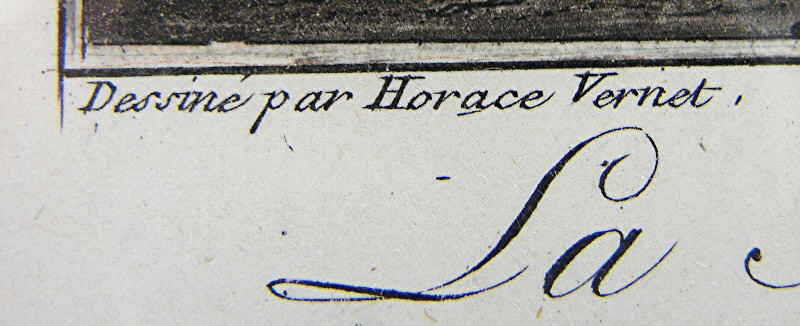 Dessiné par Horace Vernet.
La